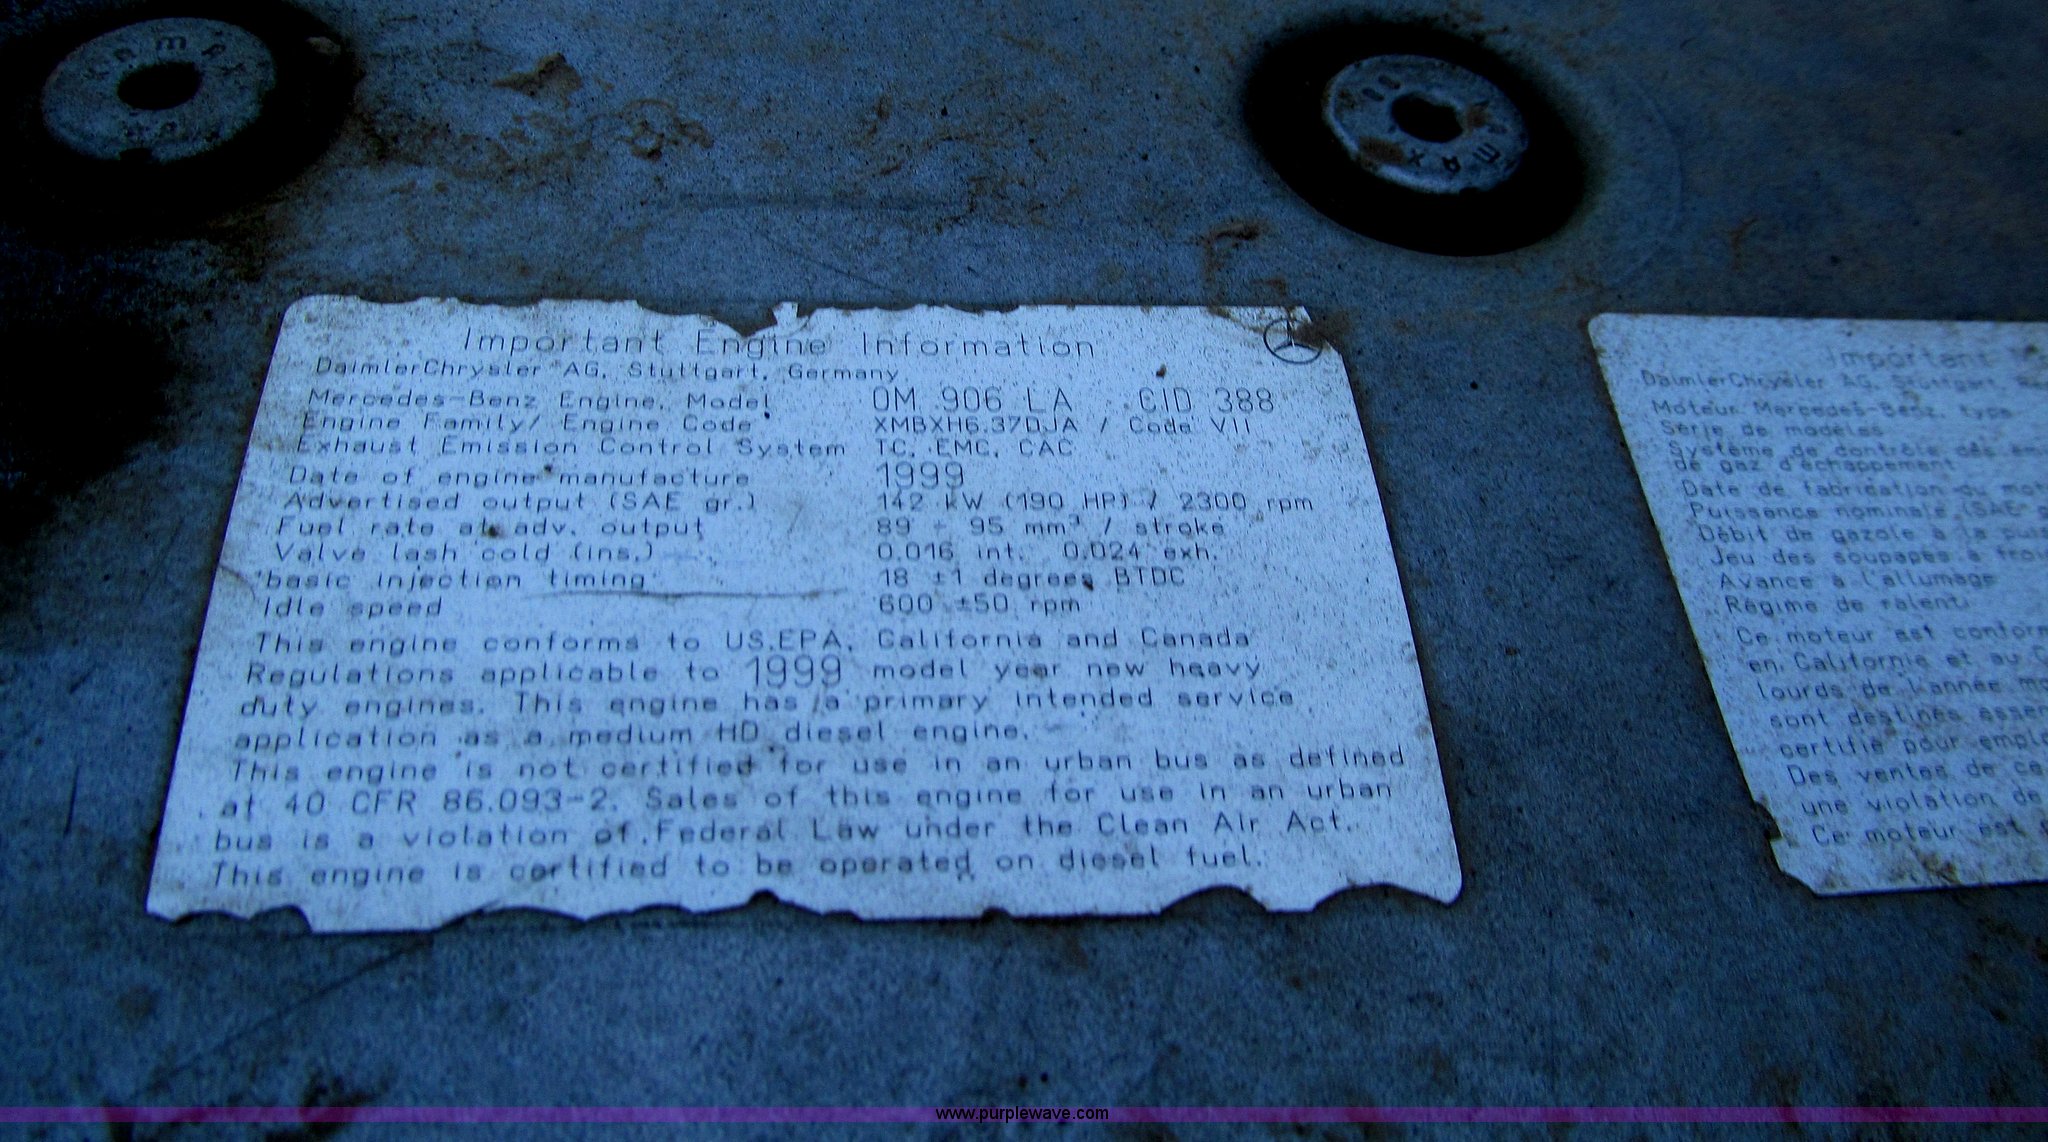 Important Engine Information
DaimlerChrysler AG, Stuttgart, Germany
Mercedes-Benz Engine, Model OM 906 LA CID 388
Engine Family/ Engine Code XMBXH6.37DJA / Code VII
Exhaust Emission Control System TC, EMC, CAC
Date of engine manufacture 1999
Advertised output (SAE gr.) 142 kW (190 HP) / 2300 rpm
Fuel rate at adv. output 89 - 95 mm³ / stroke
Valve lash cold (ins.) 0.016 int. 0.024 exh.
basic injection timing 18 ±1 degrees BTDC
Idle speed 600 ±50 rpm
This engine conforms to US.EPA, California and Canada
Regulations applicable to 1999 model year new heavy
duty engines. This engine has a primary intended service
application as a medium HD diesel engine.
This engine is not certified for use in an urban bus as defined
at 40 CFR 86.093-2. Sales of this engine for use in an urban
bus is a violation of Federal Law under the Clean Air Act.
This engine is certified to be operated on diesel fuel.
Important
DaimlerChrysler AG, Stuttgart,
Moteur Mercedes-Benz, type
Série de modèles
Système de contrôle des
de gaz d'échappement
Date de fabrication du
Puissance nominale (SAE
Débit de gazole à la
Jeu des soupapes à
Avance à l'allumage
Régime de ralenti
Ce moteur est
en, Californie et au
lourds de l'année
sont destinés
certifié pour
Des ventes de ce
une violation de
Ce moteur est
www.purplewave.com